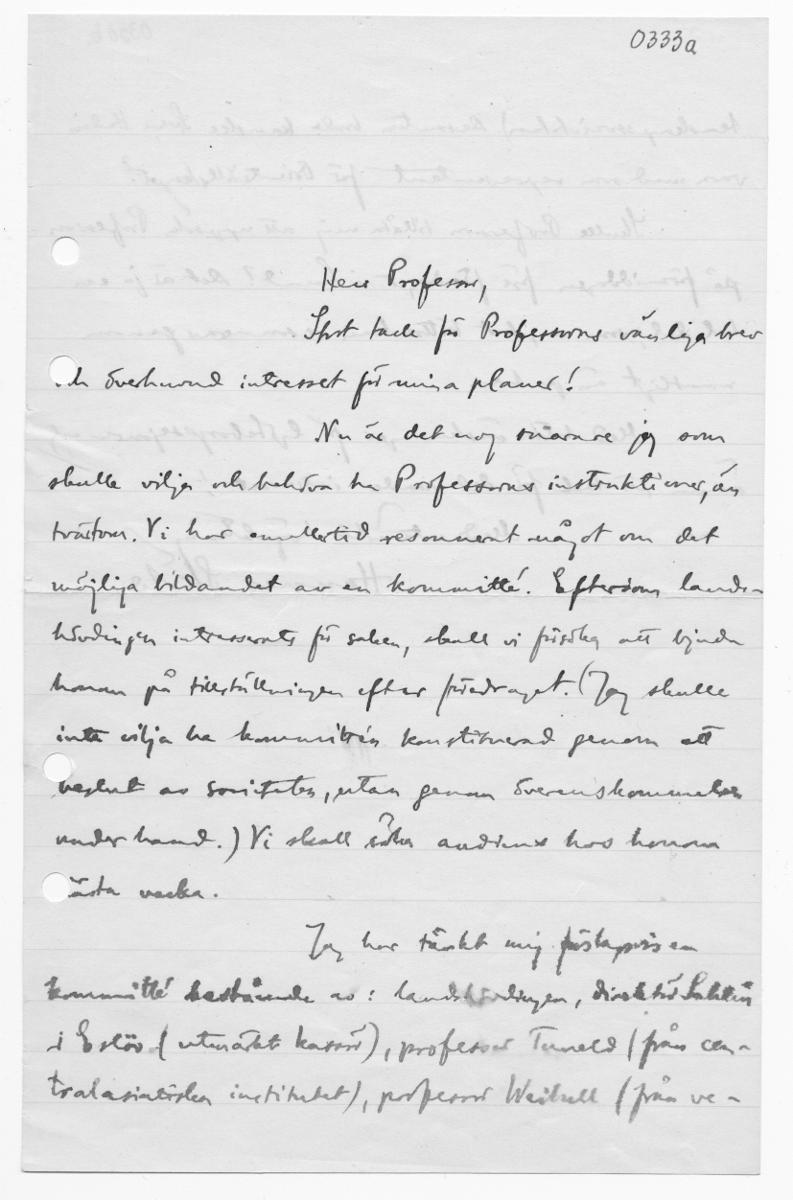 0333a
Herr Professor,
Stort tack för Professorns vänliga brev
och överhuvud intresset för mina planer!
Nu är det nog snarare jag som
skulle vilja och behöva ha Professorns instruktioner, än
tvärtom. Vi har emellertid resonnerat något om det
möjliga bildandet av en kommitté. Eftersom lands-
hövdingen intresserats för saken, skall vi försöka att bjuda
honom på tillställningen efter föredraget. (Jag skulle
inte vilja ha kommittén konstituerad genom ett
beslut av societeten, utan genom överenskommelser
under hand.) Vi skall söka audiens hos honom
nästa vecka.
Jag har tänkt mig förslagsvis en
kommitté bestående av: landshövdingen, direktör
i Eslöv (utmärkt kassör), professor Tuneld (från cen-
tralasiatiska institutet), professor Weibull (från ve-